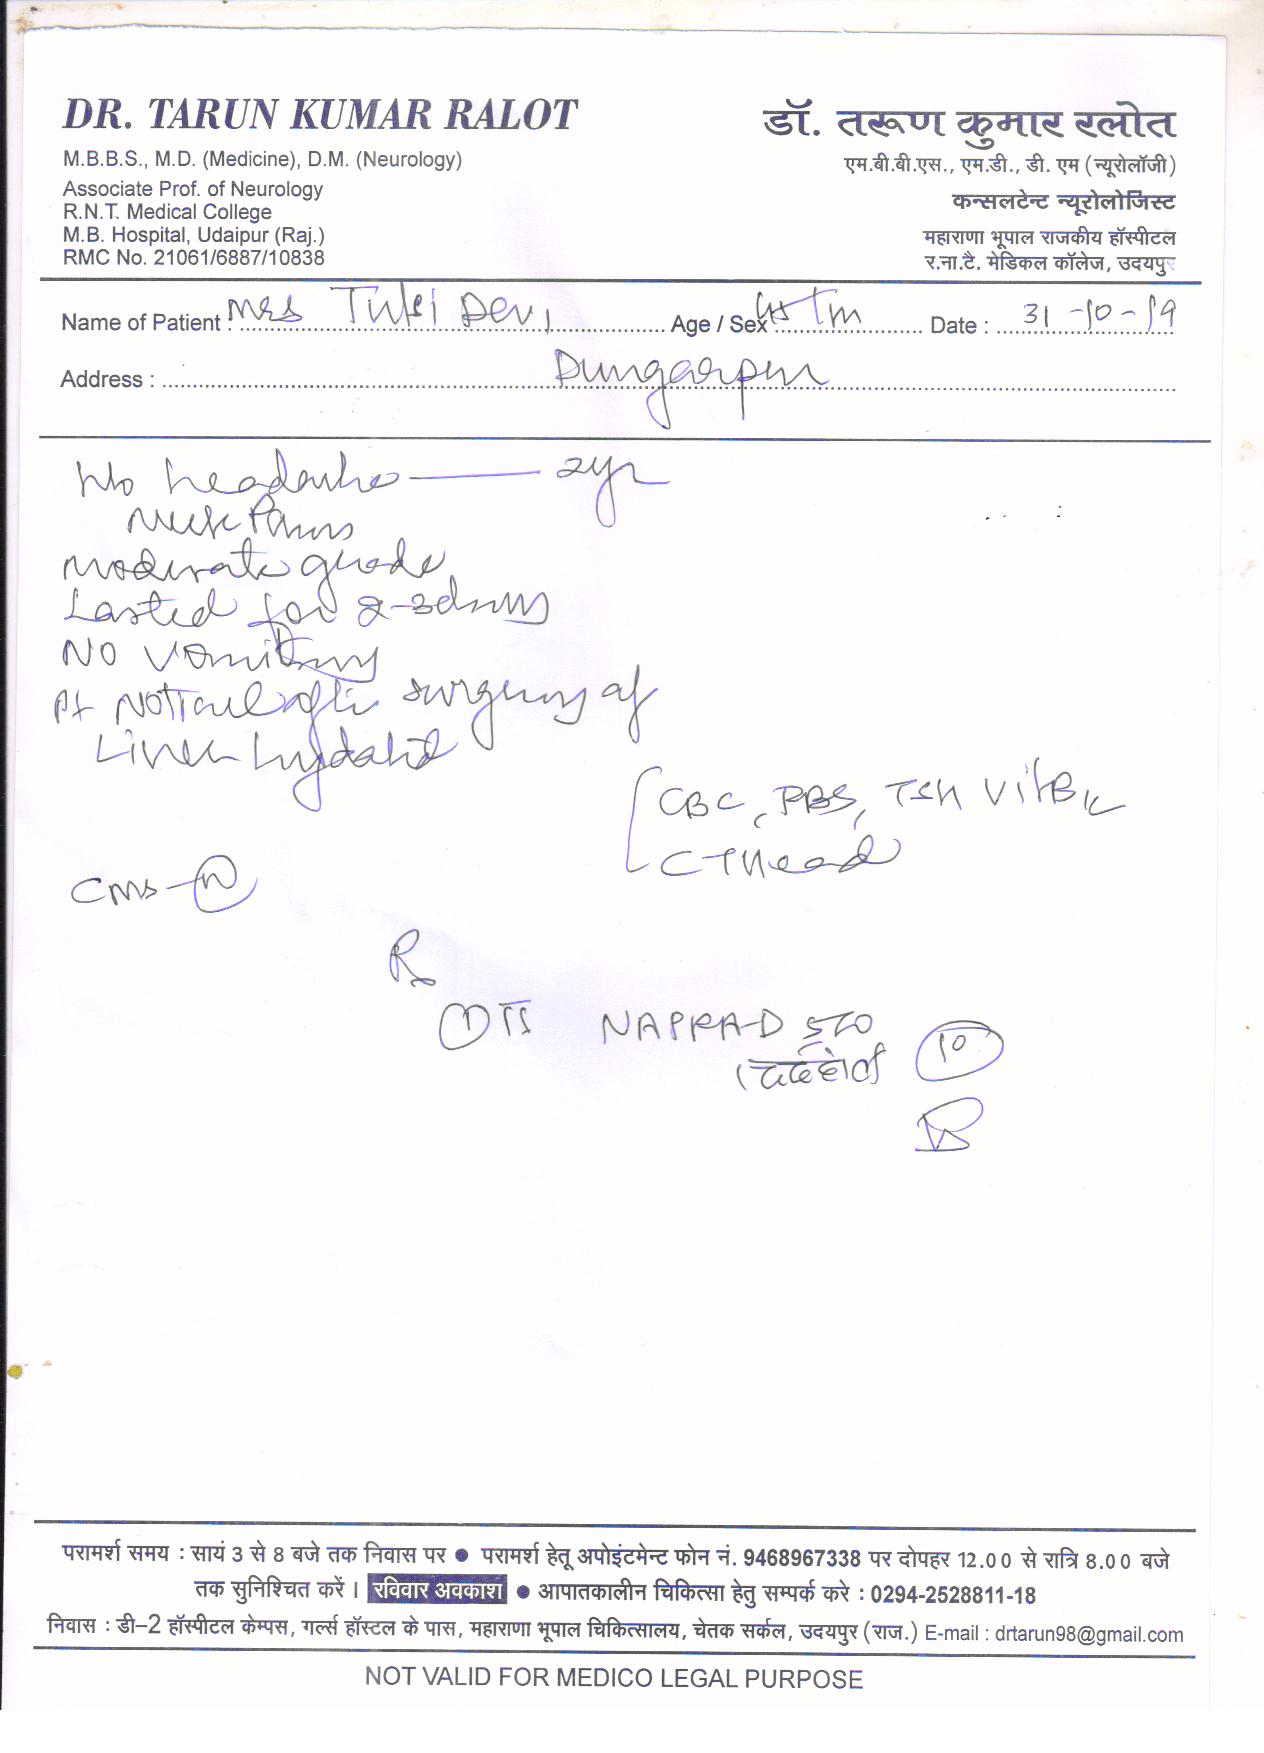 DR. TARUN KUMAR RALOT
M.B.B.S., M.D. (Medicine), D.M. (Neurology)
Associate Prof. of Neurology
R.N.T. Medical College
M.B. Hospital, Udaipur (Raj.)
RMC No. 21061/6887/10838
डॉ. तरूण कुमार रलोत
एम.बी.बी.एस., एम.डी., डी. एम (न्यूरोलॉजी)
कन्सलटेन्ट न्यूरोलोजिस्ट
महाराणा भूपाल राजकीय हॉस्पीटल
र.ना.टै. मेडिकल कॉलेज, उदयपुर
Name of Patient : Mrs Tulsi Devi Age / Sex Date : 31-10-19
Address : Dungarpur
headache — 2yr
Neck Pain
moderate grade
Lasted for 2-3days
NO Vomiting
Pt surgery of
Liver hydatid
CBC, RBS, TSH Vit B12
CT Head
CNS - N
Rx
① NAPRA-D 500
10
परामर्श समय : सायं 3 से 8 बजे तक निवास पर ● परामर्श हेतू अपोइंटमेन्ट फोन नं. 9468967338 पर दोपहर 12.00 से रात्रि 8.00 बजे
तक सुनिश्चित करें । रविवार अवकाश ● आपातकालीन चिकित्सा हेतु सम्पर्क करे : 0294-2528811-18
निवास : डी-2 हॉस्पीटल केम्पस, गर्ल्स हॉस्टल के पास, महाराणा भूपाल चिकित्सालय, चेतक सर्कल, उदयपुर (राज.) E-mail : drtarun98@gmail.com
NOT VALID FOR MEDICO LEGAL PURPOSE